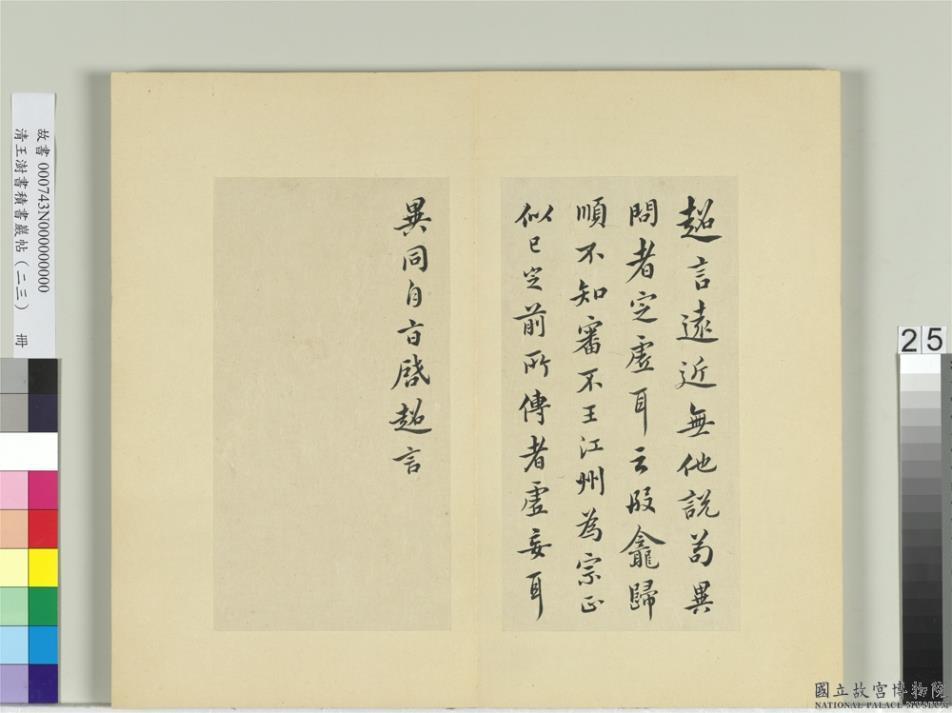 超言遠近無他說苟異
問者定虛耳云殷龕歸
順不知審不王江州為宗正
似已定前所傳者虛妄耳
異同自方啓超言
故書 000743N000000000
清王澍書積書巖帖（二三） 冊
25
國立故宮博物院
NATIONAL PALACE MUSEUM